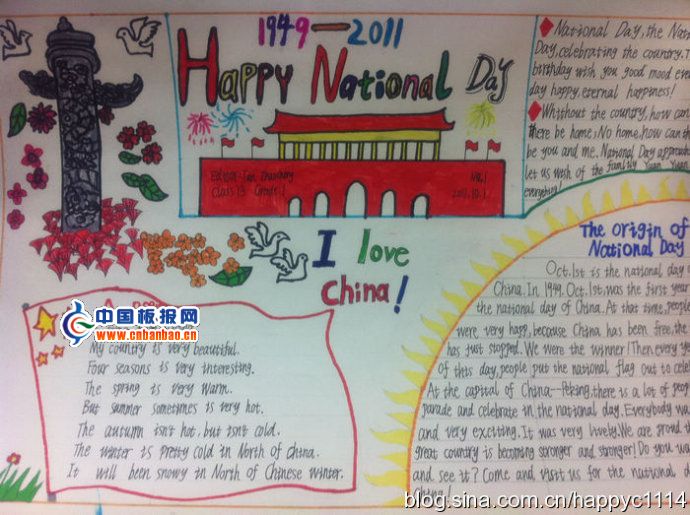 1949—2011
HAPPY National Day
Class 13 Grade 1
No.1
2011.10.1
National Day, the Nati
Day, celebrating the country. T
birthday wish you good mood ever
day happy, eternal happiness!
Whithout the country, how can
there be home; No home, how can th
be you and me. National Day approach
let us wish of the family Yuan Yuan
everything!
I love
China!
The Origin of
National Day
Oct.1st is the national day
China. In 1949. Oct.1st. was the first year
the national day of China. At that time, people
were very happ, because China has been free, the
has just stopped. We were the winner! Then every ye
of this day, people put the national flag out to celeb
At the capital of China--Peking, there is a lot of peop
parade and celebrate in the national day. Everybody wa
and very exciting. It was very lively. We are proud th
great country is becoming stronger and stronger! Do you wa
and see it? Come and visit us for the national d
China!
中国板报网
www.cnbanbao.cn
My country is very beautiful.
Four seasons is very interesting.
The spring is very warm.
But summer sometimes is very hot.
The autumn isn't hot, but isn't cold.
The winter is pretty cold in North of China.
It will been snowy in North of Chinese winter.
blog.sina.com.cn/happyc1114